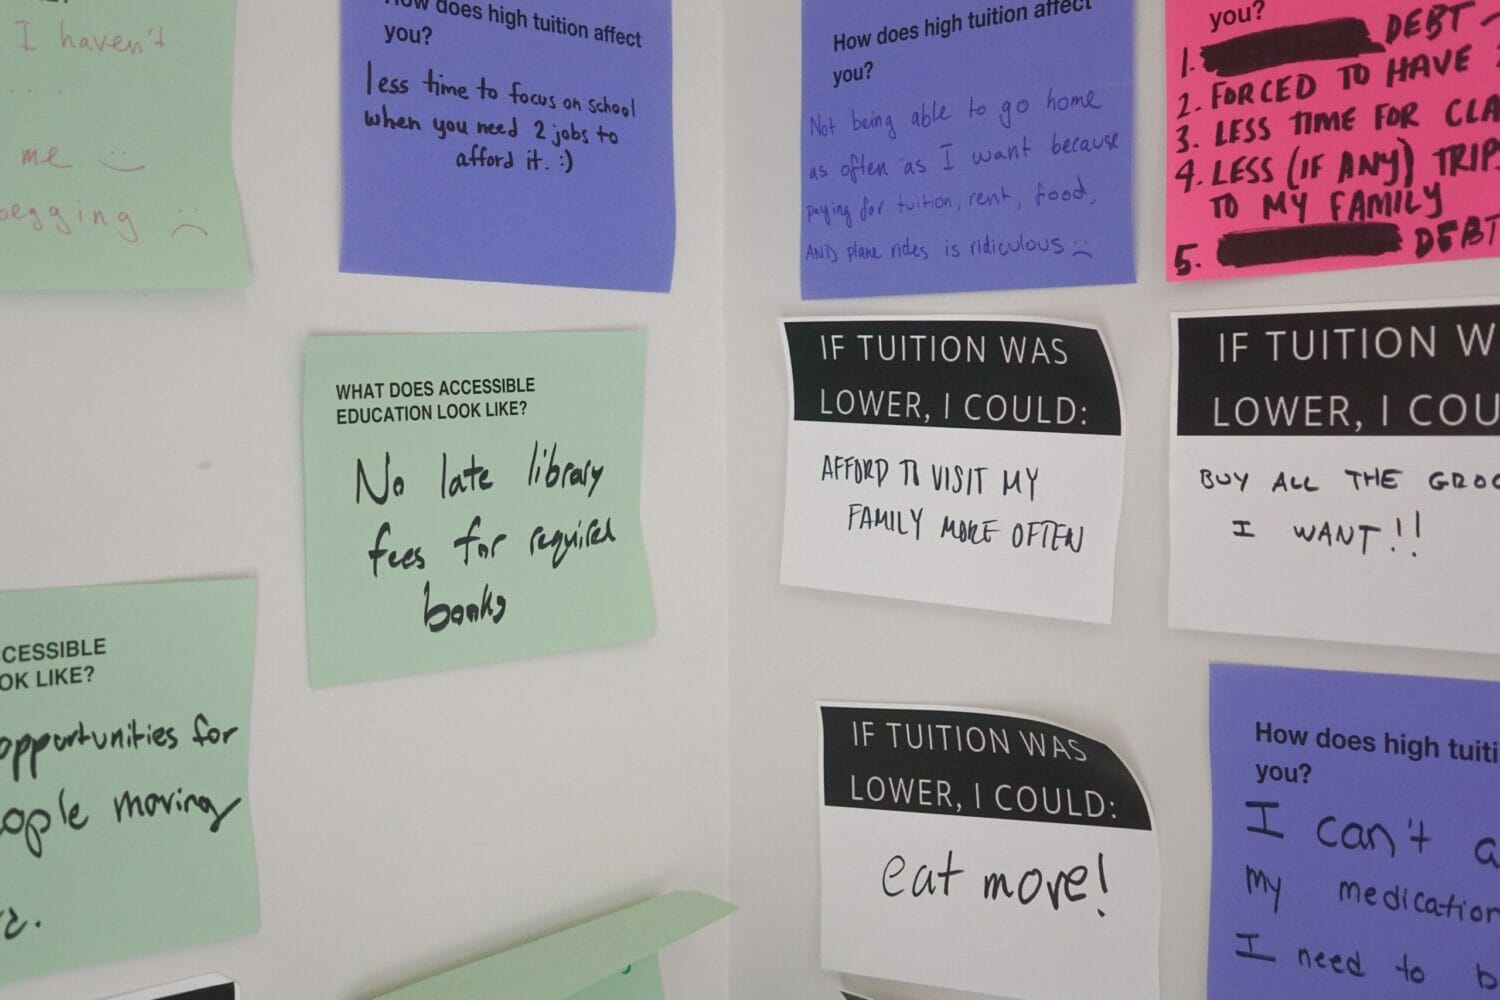 I haven't
me
begging
How does high tuition affect
you?
less time to focus on school
when you need 2 jobs to
afford it. :)
How does high tuition affect
you?
Not being able to go home
as often as I want because
paying for tuition, rent, food,
AND plane rides is ridiculous
you?
1. DEBT
2. FORCED TO HAVE
3. LESS TIME FOR
4. LESS (IF ANY)
TO MY FAMILY
5. DEBT
WHAT DOES ACCESSIBLE
EDUCATION LOOK LIKE?
No late library
fees for required
books
IF TUITION WAS
LOWER, I COULD:
AFFORD TO VISIT MY
FAMILY MORE OFTEN
IF TUITION
LOWER, I
BUY ALL THE
I WANT!!
LIKE?
opportunities for
moving
IF TUITION WAS
LOWER, I COULD:
eat more!
How does high
you?
I can't
my
I need to